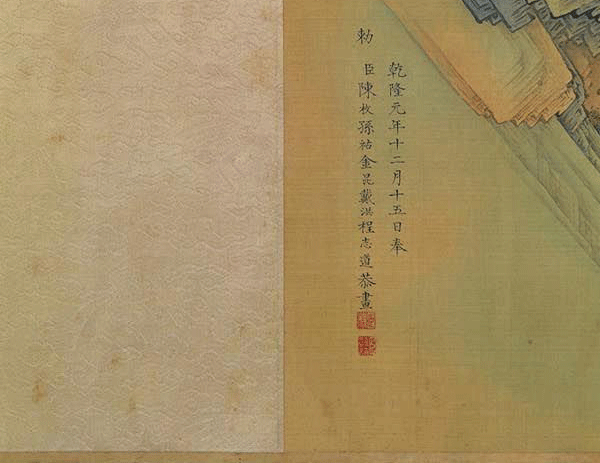 乾隆元年十二月十五日奉
勅 臣陳枚孫祜金昆戴洪程志道恭畫